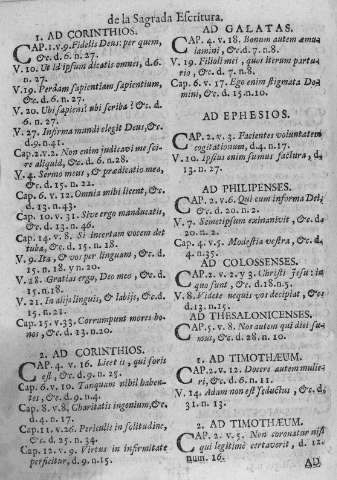 de la Sagrada Escritura.
1. AD CORINTHIOS.
CAP. 1. v. 9. Fidelis Deus: per quem,
&c. d. 6. n. 27.
V. 10. Ut id ipsum dicatis omnes, d. 6.
n. 27.
V. 19. Perdam sapientiam sapientium,
&c. d. 6. n. 27.
V. 20. Ubi sapiens? ubi scriba? &c. d.
6. n. 27.
V. 27. Infirma mundi elegit Deus, &c.
d. 9. n. 41.
Cap. 2. v. 2. Non enim judicavi me sci-
re aliquid, &c. d. 6. n. 28.
V. 4. Sermo meus, & prædicatio mea,
&c. d. 15. n. 22.
Cap. 6. v. 12. Omnia mihi licent, &c.
d. 13. n. 43.
Cap. 10. v. 31. Sive ergo manducatis,
&c. d. 13. n. 46.
Cap. 14. v. 8. Si incertam vocem det
tuba, &c. d. 15. n. 18.
V. 9. Ita, & vos per linguam, &c. d.
15. n. 18. y n. 20.
V. 28. Gratias ergo, Deo meo, &c. d.
15. n. 18.
V. 21. In alijs linguis, & labijs, &c. d.
15. n. 21.
Cap. 15. v. 33. Corrumpunt mores bo-
nos, &c. d. 2. n. 10.
2. AD CORINTHIOS.
CAP. 4. v. 16. Licet is, qui foris
est, &c. d. 9. n. 25.
Cap. 6. v. 10. Tanquam nihil haben-
tes, &c. d. 9. n. 4.
Cap. 8. v. 8. Charitatis ingenium, &c.
d. 4. n. 17.
Cap. 11. v. 26. Periculis in solitudine,
&c. d. 25. n. 34.
Cap. 12. v. 9. Virtus in infirmitate
perficitur, d. 9. n. 15.
AD GALATAS.
CAP. 4. v. 18. Bonum autem æmu-
lamini, &c. d. 7. n. 8.
V. 19. Filioli mei, quos iterum partu-
rio, &c. d. 7. n. 8.
Cap. 6. v. 17. Ego enim stigmata Do-
mini, &c. d. 15. n. 10.
AD EPHESIOS.
CAP. 2. v. 3. Facientes voluntatem
cogitationum, d. 4. n. 17.
V. 10. Ipsius enim sumus factura, d.
13. n. 27.
AD PHILIPENSES.
CAP. 2. v. 6. Qui cum informa Dei
&c. d. 20. n. 2.
V. 7. Semetipsum exinanivit, &c. d.
20. n. 2.
Cap. 4. v. 5. Modestia vestra, &c. d.
4. n. 35.
AD COLOSSENSES.
CAP. 2. v. 2. y 3. Christi Jesu: in
quo sunt, &c. d. 18. n. 5.
V. 8. Videte nequis vos decipiat, &c.
d. 13. n. 15.
AD THESALONICENSES.
CAP. 5. v. 8. Nos autem qui diei su-
mus, &c. d. 28. n. 10.
1. AD TIMOTHÆUM.
CAP. 2. v. 12. Docere autem mulie-
ri, &c. d. 6. n. 11.
V. 14. Adam non est seductus, &c. d.
31. n. 13.
2. AD TIMOTHÆUM.
CAP. 2. v. 5. Non coronatur nisi
qui legitimè certavorit, d. 12.
num. 16.
AD